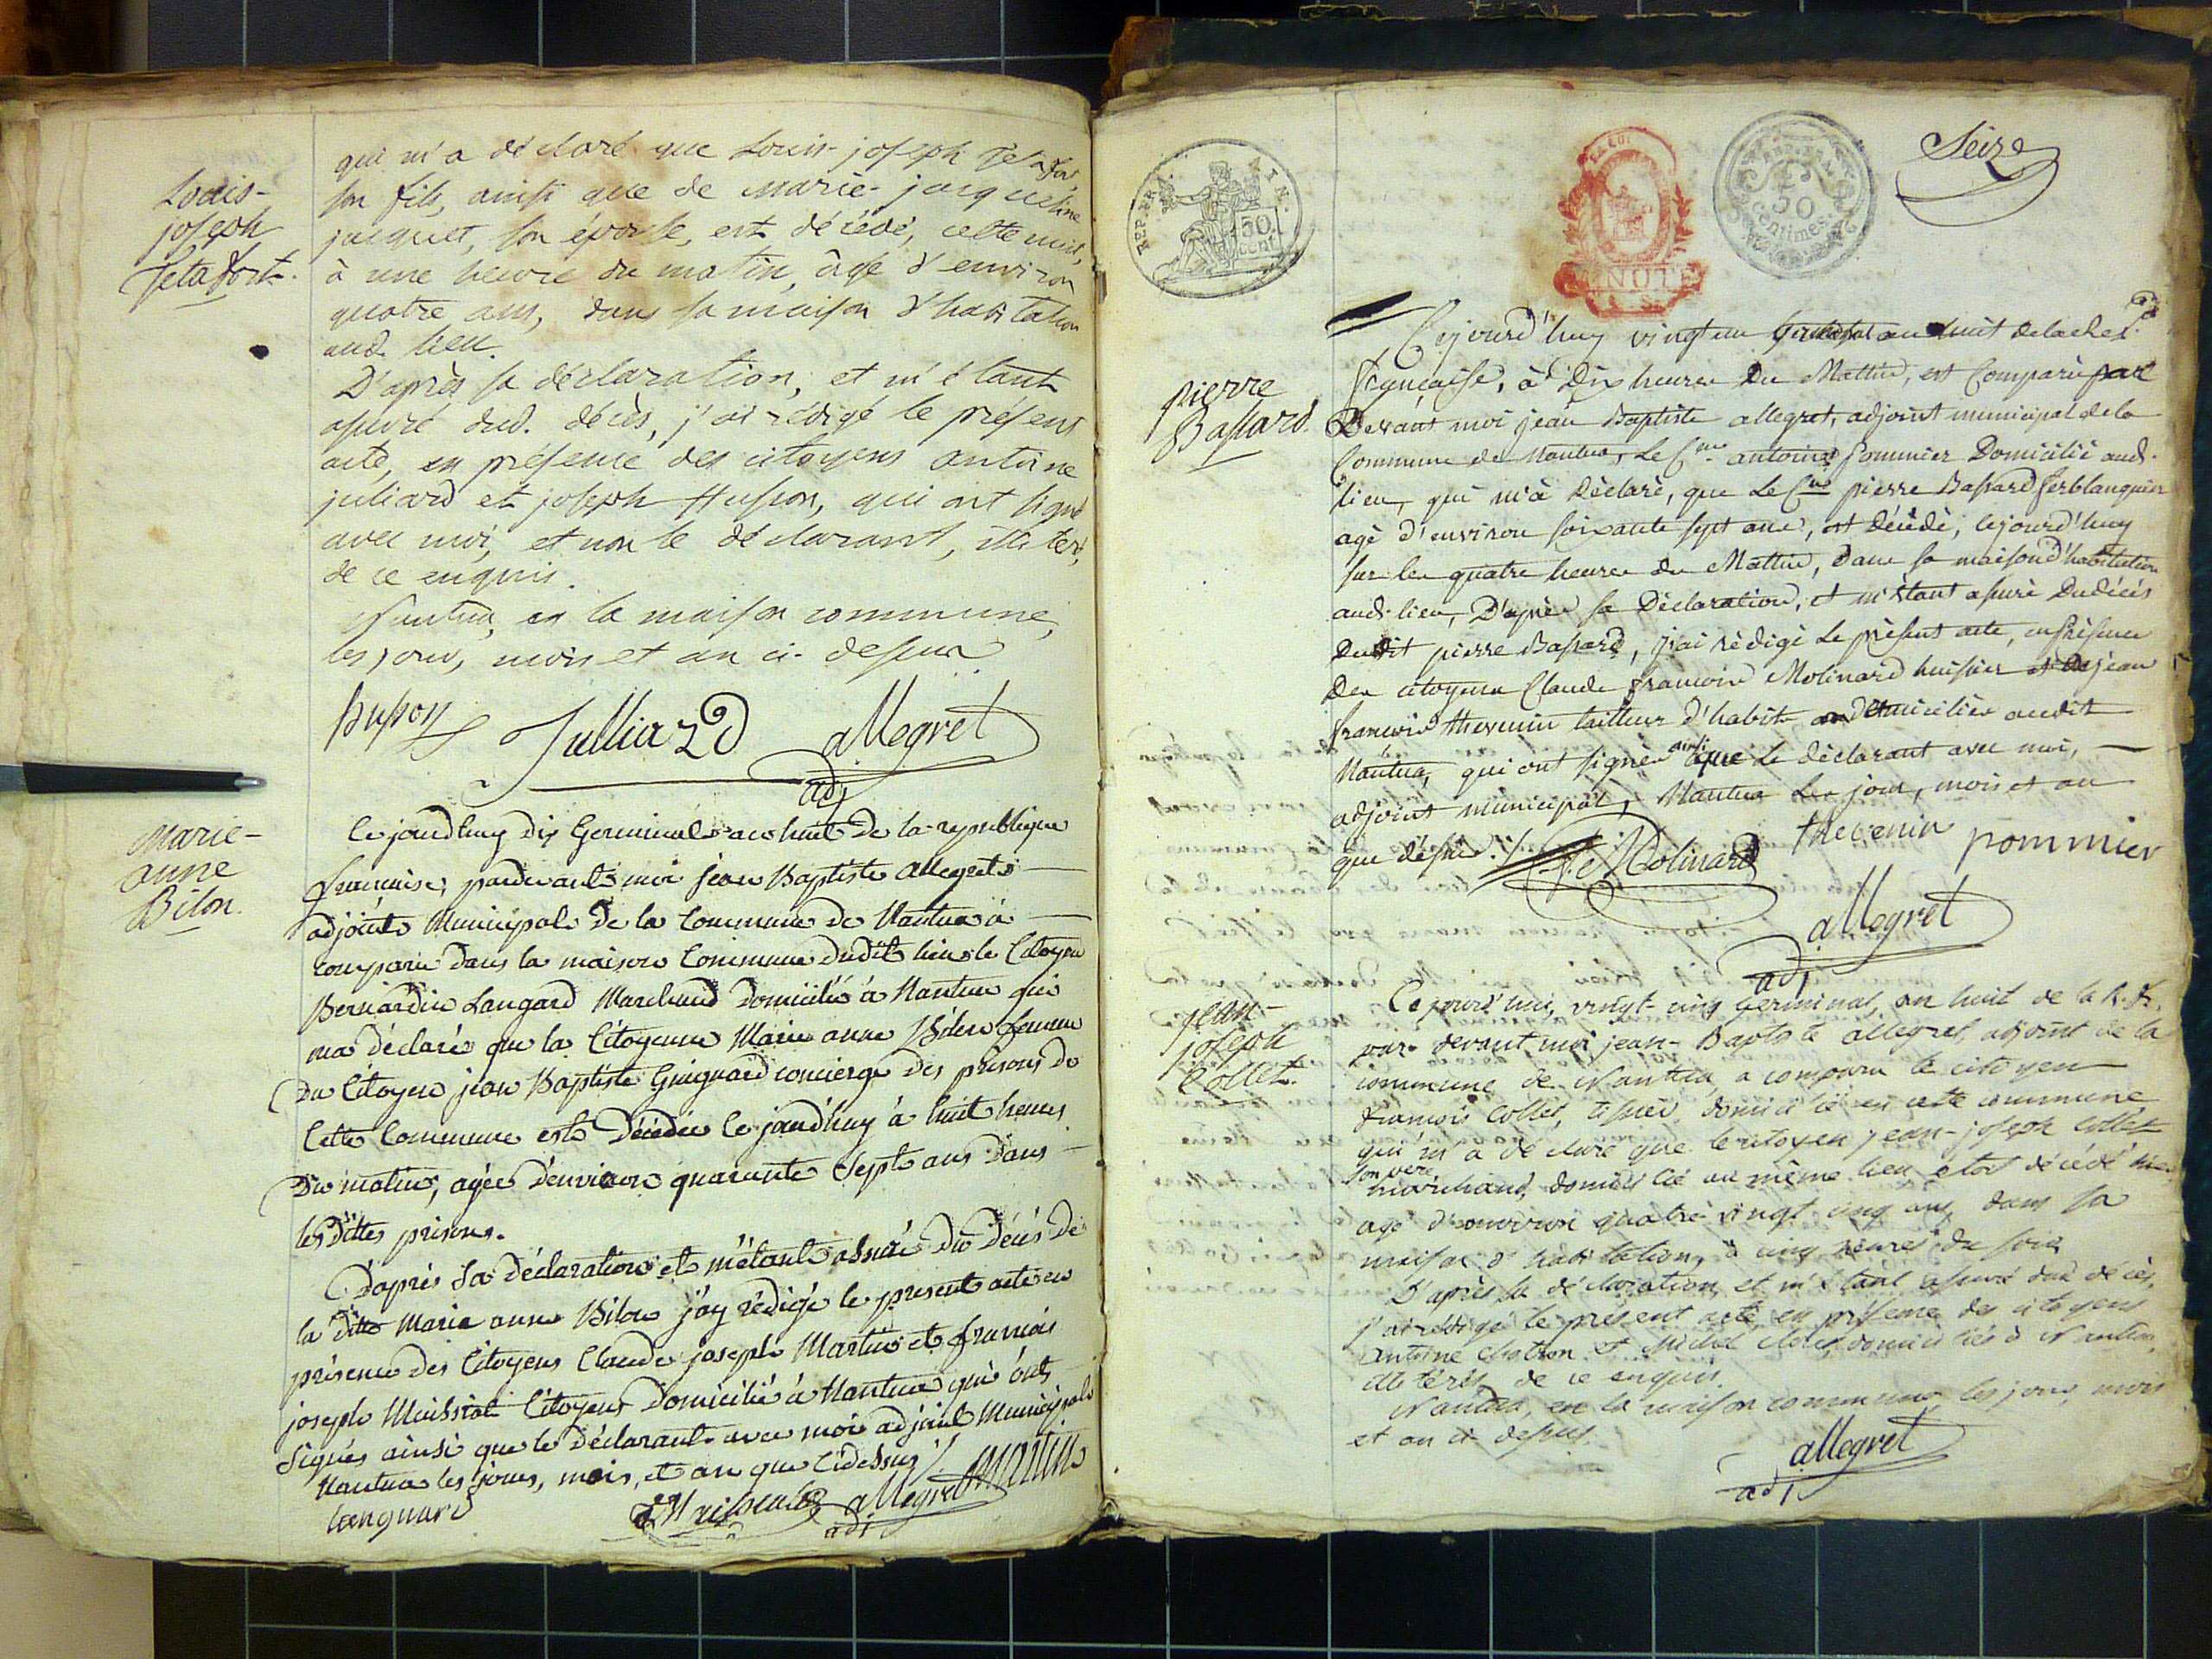 Louis-
joseph
Tetafort.
qui m'a déclaré que Louis-joseph Tetafort
son fils, ainsi que de marie-jacqueline
jacquet, son épouse, est décédé, cette nuit,
à une heure du matin, âgé d'environ
quatre ans, dans sa maison d'habitation
aud. lieu.
D'après sa déclaration, et m'étant
assuré dud. décès, j'ai rédigé le présent
acte, en présence des citoyens antoine
juliard et joseph Husson, qui ont signé
avec moi, et non le déclarant, illitéré,
de ce enquis.
Nantua, en la maison commune,
les jour, mois et an ci-dessus
husson Julliard allegret
adj
Marie-
anne
Bilon.
Ce jourdhuy dix Germinal an huit de la republique
française, pardevant moi jean Baptiste allegret
adjoint Municipal de la Commune de Nantua à
comparu dans la maison Commune dudit lieu le Citoyen
Bernardin Langard Marchand Domicilié à Nantua qui
ma déclaré que la Citoyenne Marie anne Bilon femme
Du Citoyen jean Baptiste Guignard concierge des prisons de
Cette Commune est Décédée Ce jourdhuy à huit heures
Du matin, agée d'environ quarante Sept ans Dans
les Dittes prisons.
D'après Sa Déclaration et m'étant assuré Du Décés de
la ditte Marie anne Bilon j'ay rédigé le present acte en
présence des Citoyens Claude joseph Martin et françois
joseph Maissiat Citoyens Domicilié à Nantua qui ont
Signés ainsi que le Déclarant avec moi adjoint Municipal
Nantua les jour, mois, et an que Cidessus ./.
Languard allegret Martin
adj
REP. FRA. 50 cent
LA LOI
MINUTE
REP. FRA. 50 Centimes
Seize
pierre
Bassard.
Cejourd'huy vingt un Germinal an huit de la Rep.
française, à Dix heures Du Mattin, est Comparu par
Devant moi jean Baptiste allegret, adjoint municipal de la
Commune de Nantua, Le Cen antoine Pommier Domicilié aud.
lieu, qui m'à Déclaré, que Le Cen pierre Bassard ferblanquier
agé d'environ soixante sept ans, est décédé, cejourd'huy
sur les quatre heures du Mattin, Dans sa maison d'habitation
aud. lieu, D'après sa Déclaration, et m'étant assuré Du décés
Dudit pierre Bassard, j'ai rédigé Le présent acte, en présence
Des citoyens Claude françois Molinard huissier et De jean
françois thevenin tailleur d'habits domiciliés audit
Nantua, qui ont signés ainsi que Le déclarant avec moi,
adjoint municipal, Nantua Les jour, mois et an
que dessus ./. Molinard thevenin pommier
allegret
adj
jean-
joseph
Collet.
Cejourd'hui, vingt-cinq Germinal, an huit de la R. fr.
par-devant moi jean-Baptiste allegret, adjoint de la
commune de Nantua, a comparu le citoyen
françois Collet, tissier, domicilié en cette commune,
qui m'a déclaré que le citoyen jean-joseph Collet
son père
marchand, domicilié au même lieu, étoit décédé hier
agé d'environ quatre-vingt cinq ans, dans sa
maison d'habitation, à cinq heures du soir
D'après sa déclaration, et m'étant assuré dud. décès,
j'ai rédigé le présent acte, en présence des citoyens
antoine et Michel domiciliés à Nantua,
illitérés, de ce enquis.
Nantua, en la maison commune, les jour, mois
et an ci-dessus.
allegret
adj